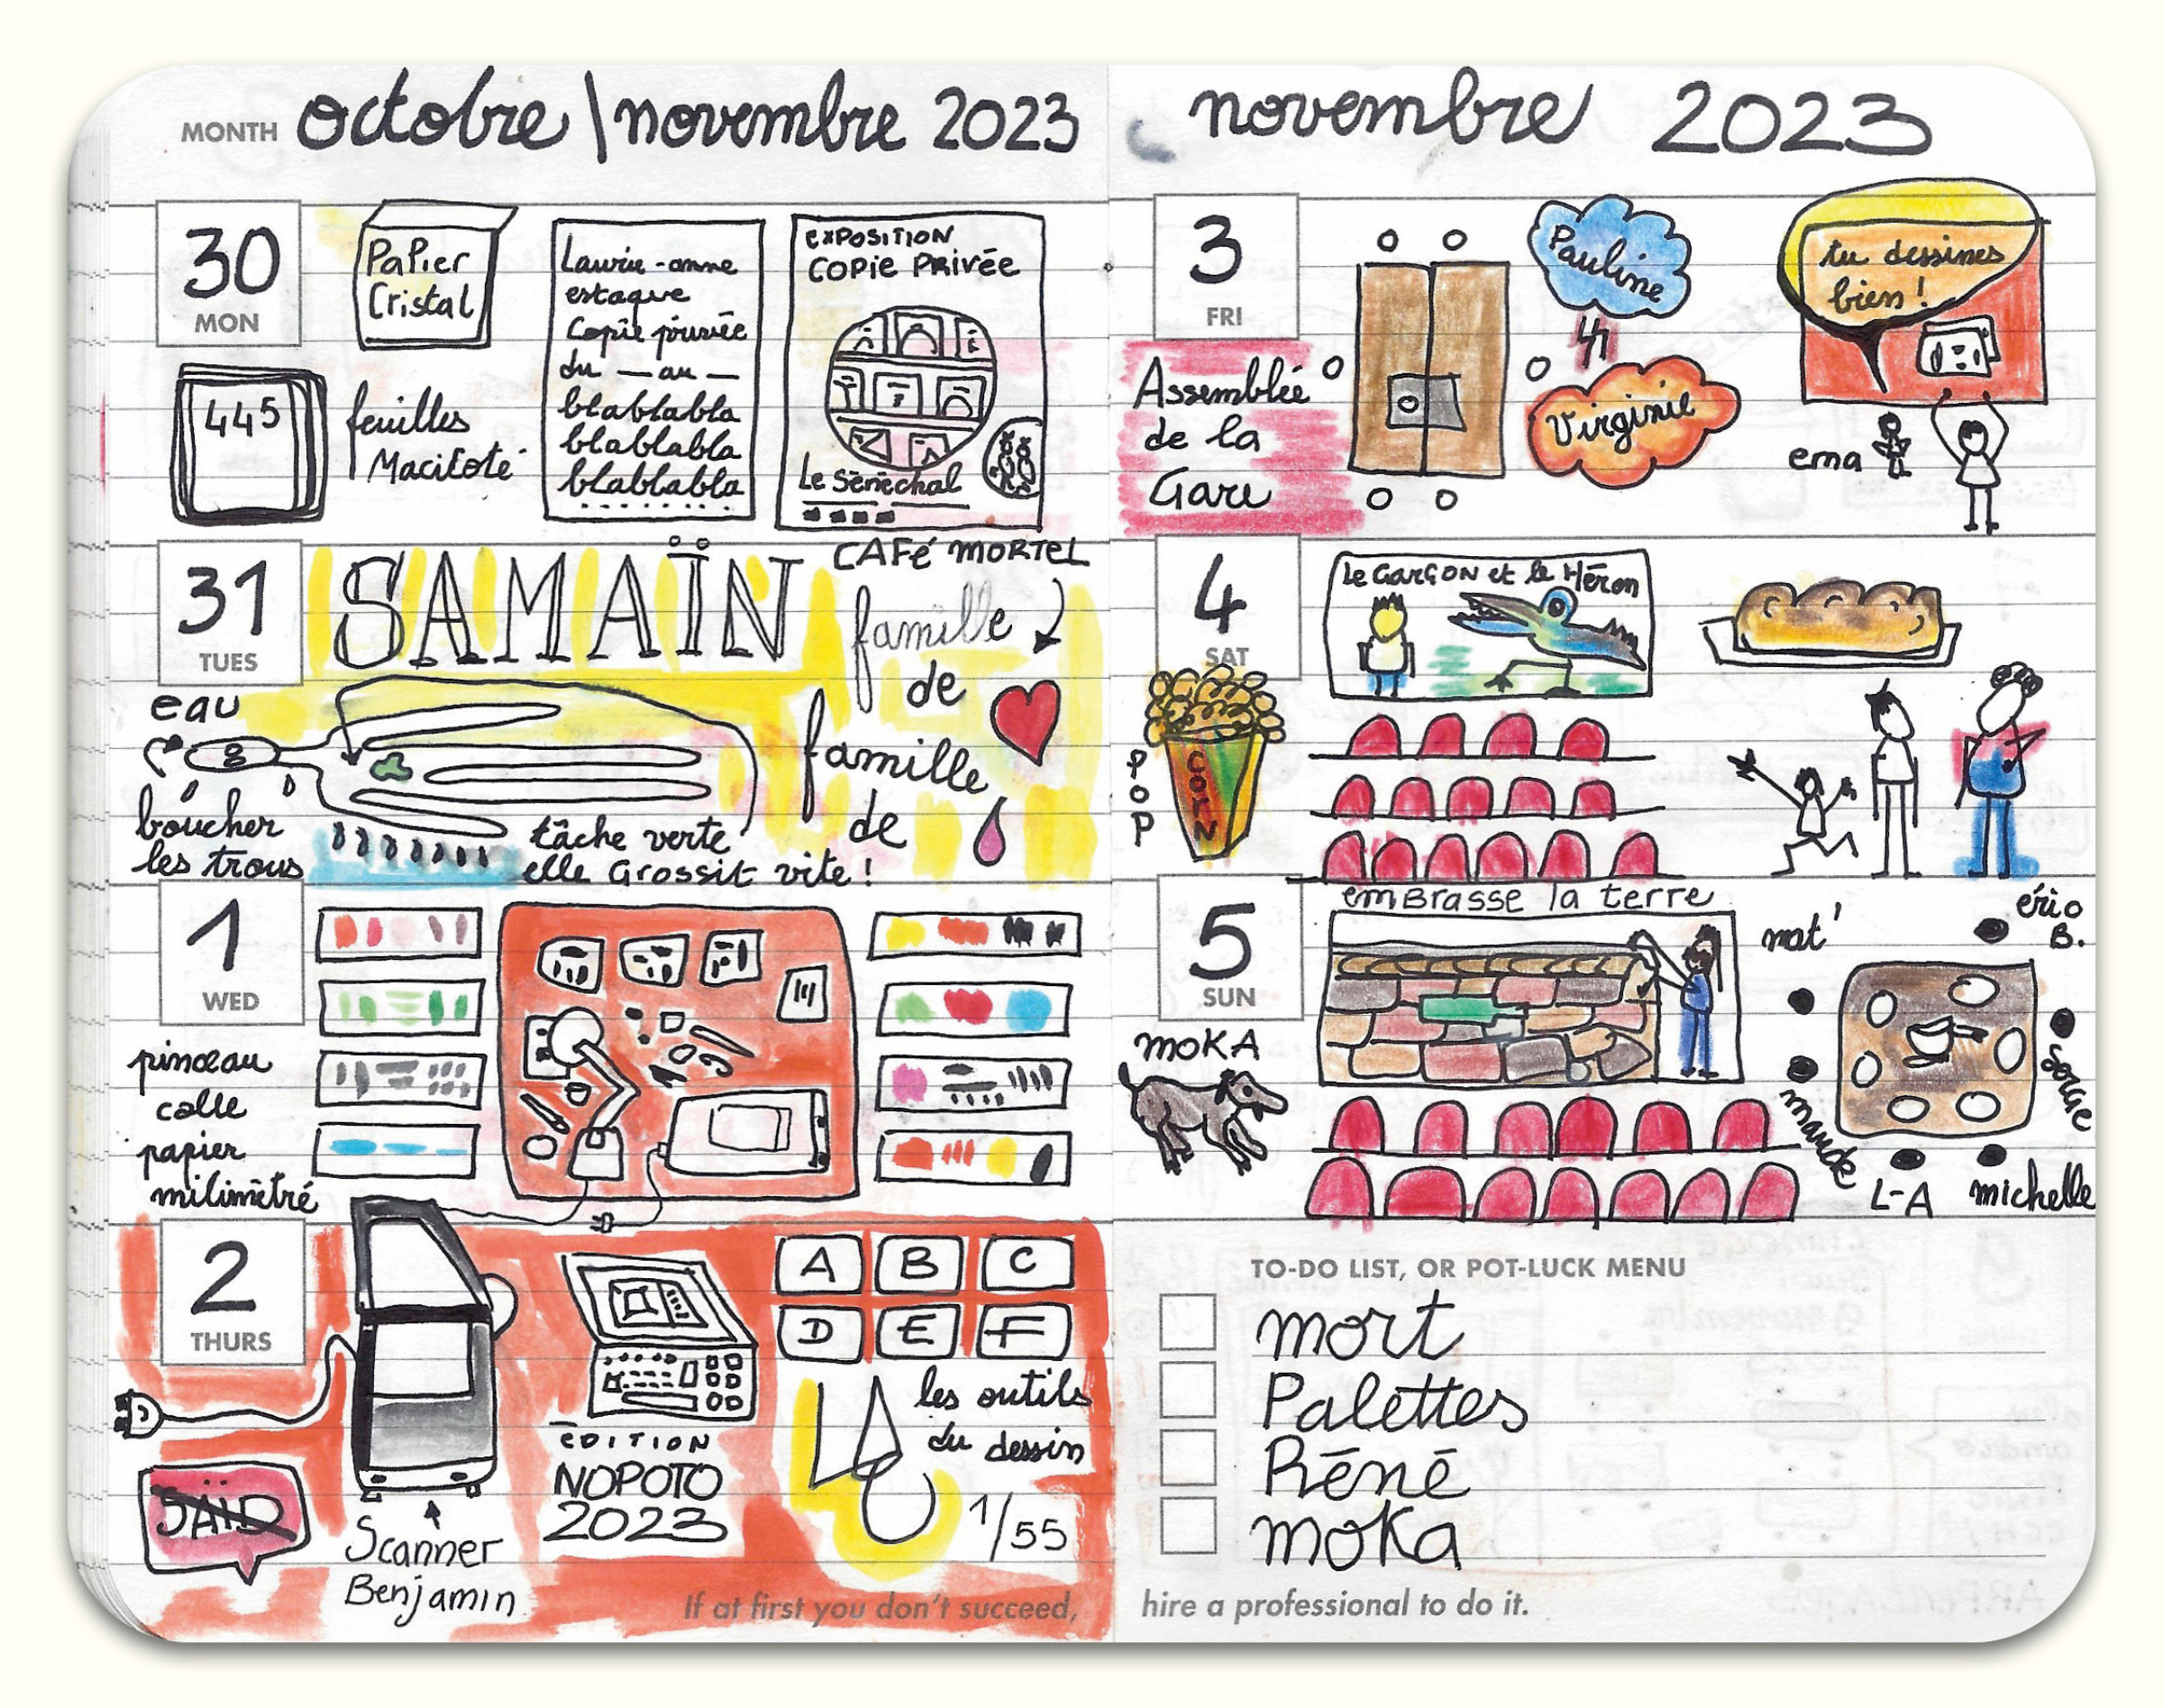 MONTH octobre \ novembre 2023
30
MON
Papier
Cristal
445
feuilles
Laurie-anne
estaque
Copie privée
du — au —
blablabla
blablabla
blablabla
EXPOSITION
COPIE PRIVÉE
Le Sénéchal
31
TUES
SAMAÏN
CAFÉ MORTEL
famille
de
famille
de
eau
boucher
les trous
tâche verte
elle Grossit vite!
1
WED
pinceau
colle
papier
milimètré
2
THURS
SAÏD
Scanner
Benjamin
ÉDITION
NOPOTO
2023
A B C
D E F
les outils
du dessin
1/55
If at first you don't succeed,
novembre 2023
3
FRI
Assemblée
de la
Gare
Pauline
Virginie
tu dessines
bien!
ema
4
SAT
POP
CORN
Le Garçon et le Héron
5
SUN
MOKA
emBrasse la terre
mat'
éric
B.
serge
maude
L-A
michelle
TO-DO LIST, OR POT-LUCK MENU
mort
Palettes
Réné
moka
hire a professional to do it.